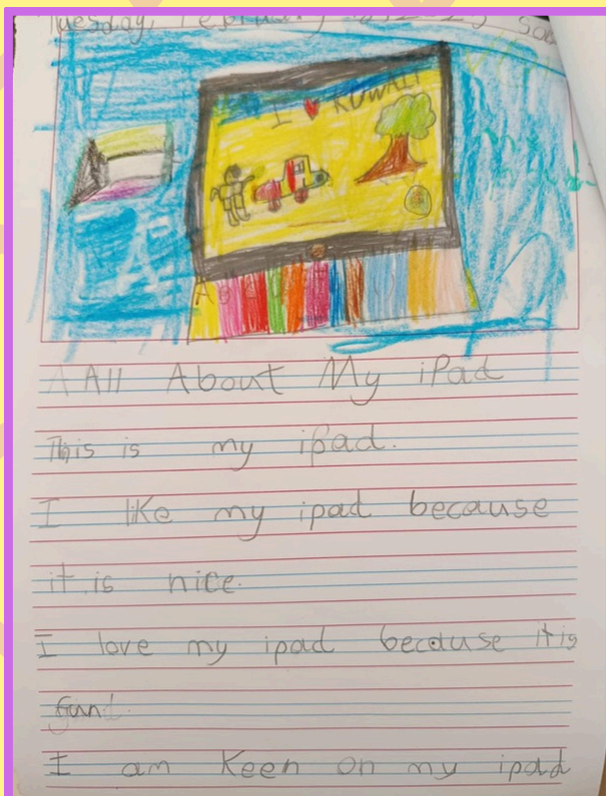 Tuesday, February
I ❤ KUWAIT
All About My iPad
This is my ipad.
I like my ipad because
it is nice.
I love my ipad because it is
fun.
I am Keen on my ipad